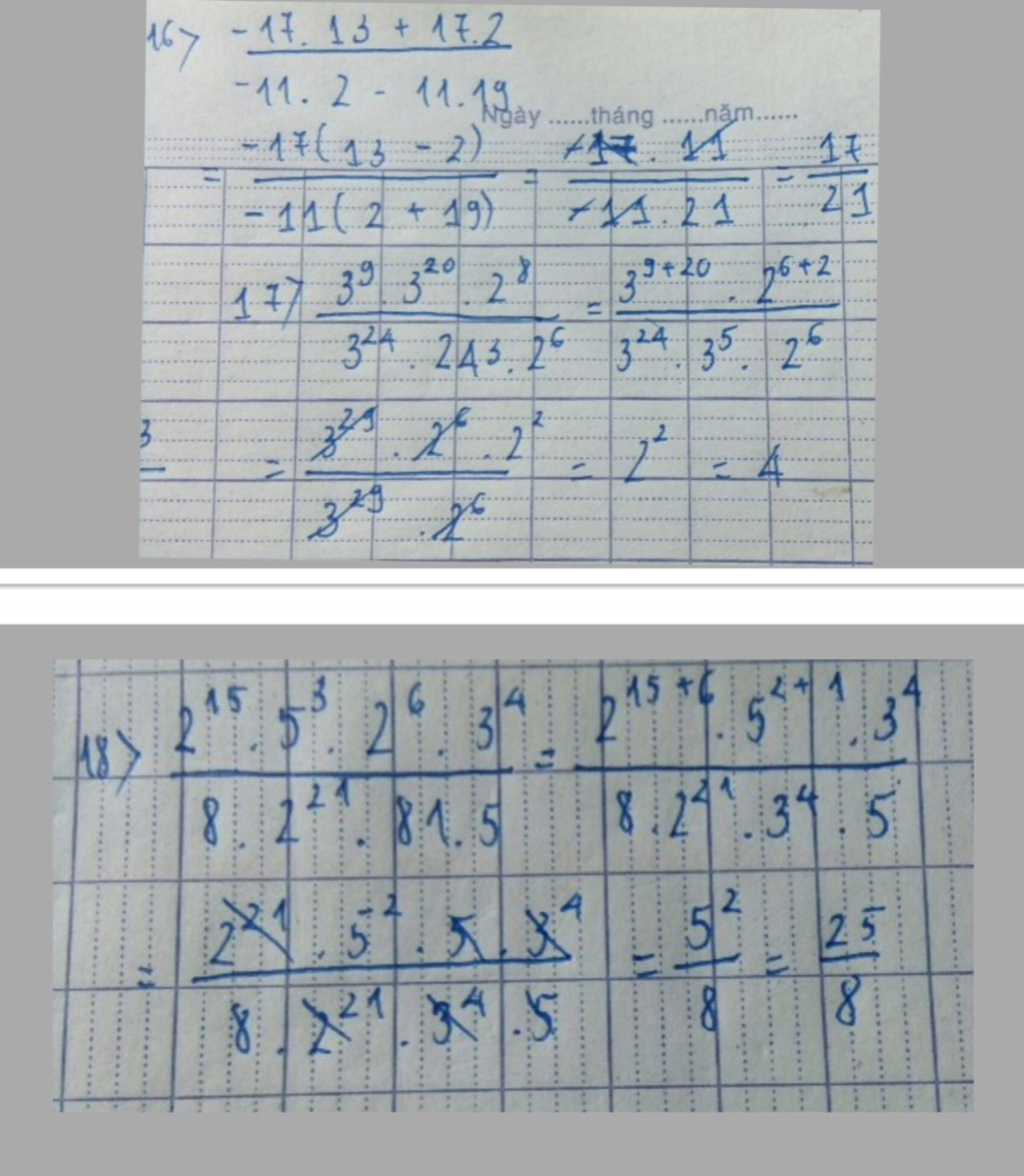 16> -17.13 + 17.2
-11.2 - 11.19
Ngày ......tháng ......năm......
= -17(13 - 2) / -11(2 + 19) = -17.11 / -11.21 = 17 / 21
17> 3^9.3^20.2^8 / 3^24.243.2^6 = 3^9+20.2^6+2 / 3^24.3^5.2^6
3
= 3^29.2^6.2^2 / 3^29.2^6 = 2^2 = 4
18> 2^15.5^3.2^6.3^4 / 8.2^21.81.5 = 2^15+6.5^2+1.3^4 / 8.2^21.3^4.5
= 2^21.5^2.5.3^4 / 8.2^21.3^4.5 = 5^2 / 8 = 25 / 8